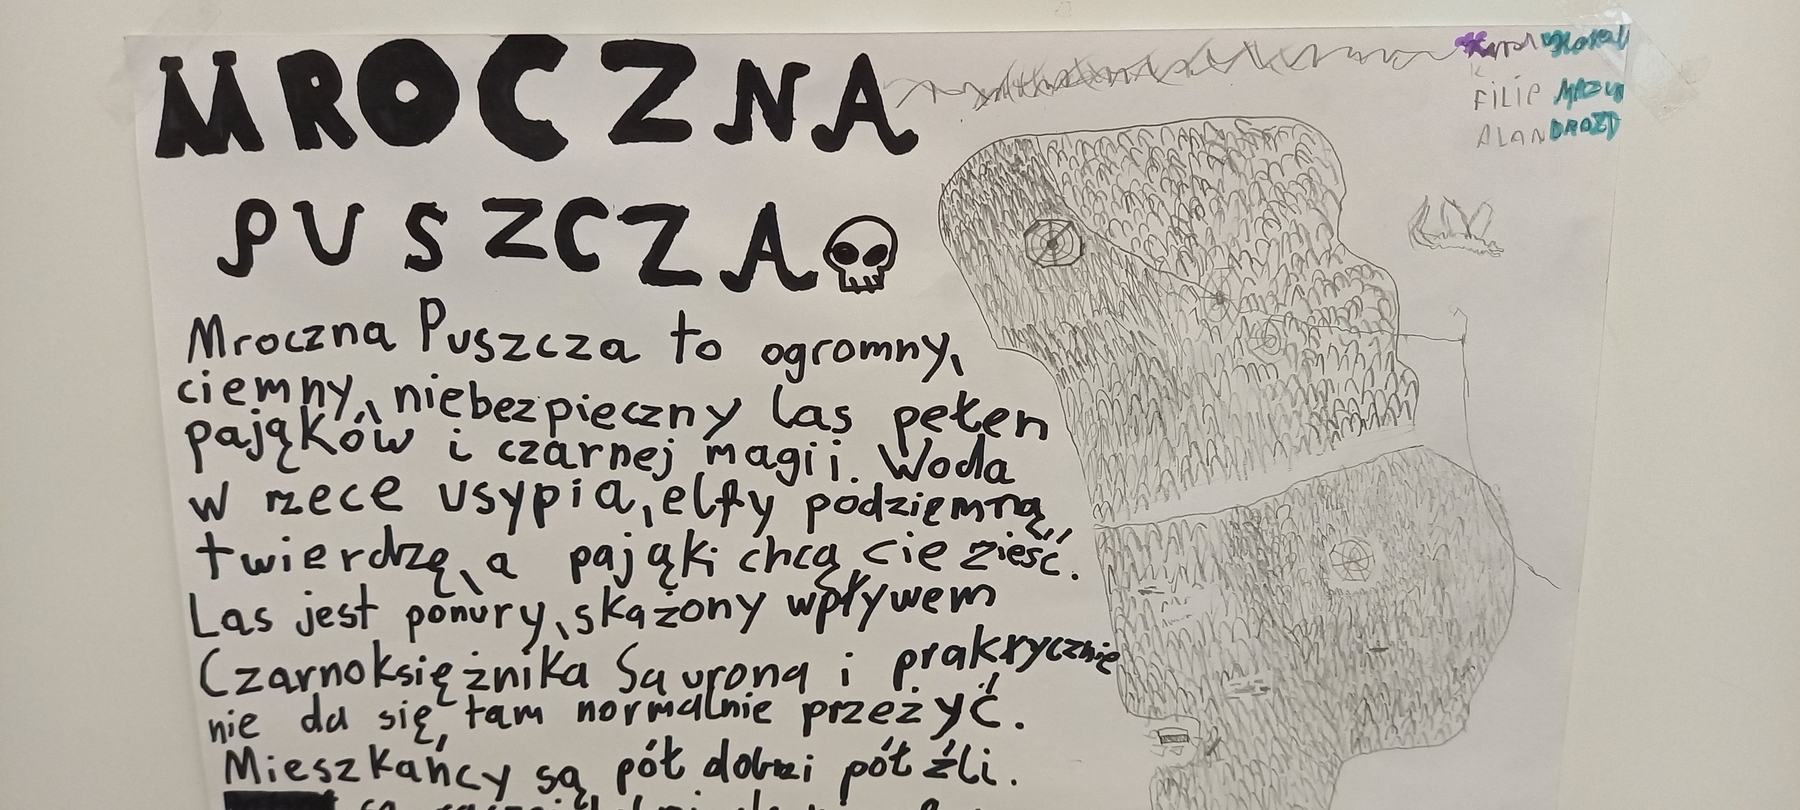 MROCZNA
PUSZCZA
FILIP MAZUR
ALAN DROZD
Mroczna Puszcza to ogromny,
ciemny, niebezpieczny las pełen
pająków i czarnej magii. Woda
w rzece usypia, elfy podziemną
twierdzę, a pająki chcą cie zieść.
Las jest ponury, skażony wpływem
Czarnoksiężnika Saurona i prakrycznie
nie da się tam normalnie przeżyć.
Mieszkańcy są pół dobrzi pół źli.